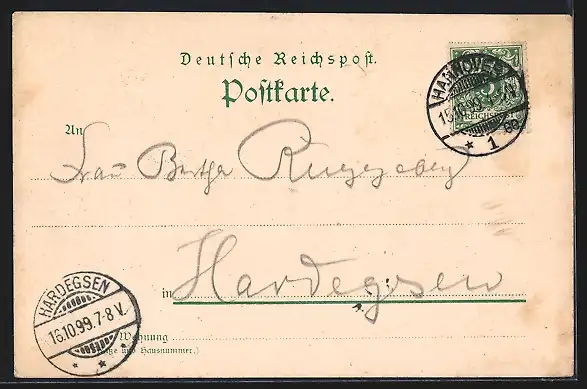 Deutsche Reichspost.
Postkarte.
HANNOVER
15.10.99.
1
REICHSPOST
An
Frau Bertha Ruggeberg
in Hardegsen
HARDEGSEN
16.10.99.7-8 V.
* *
Wohnung
und Hausnummer.)